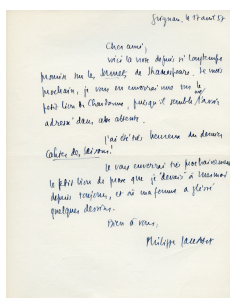 Grignan, le 17 août 57
Cher ami,
voici la note depuis si longtemps
promise sur les Sonnets de Shakespeare. Le mois
prochain, je vous en enverrai une sur le
petit livre de Chardonne, puisqu'il semble l'avoir
adressé dans cette attente.
J'ai été très heureux du dernier
Cahier des Saisons!
Je vous enverrai très prochainement
le petit livre de prose que je "devais" à Mermod
depuis toujours, et où ma femme a glissé
quelques dessins.
Bien à vous,
Philippe Jaccottet